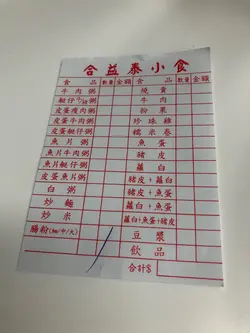 合益泰小食
食品 數量 金額 食品 數量 金額
牛肉粥 燒賣
艇仔 粥 牛肉
皮蛋瘦肉粥 粉果
皮蛋牛肉粥 珍珠雞
皮蛋艇仔粥 糯米卷
魚片粥 魚蛋
魚片牛肉粥 豬皮
魚片艇仔粥 蘿白
皮蛋魚片粥 豬皮+蘿白
白粥 豬皮+魚蛋
炒麵 蘿白+魚蛋
炒米 蘿白+魚蛋+豬皮
腸粉(細/中/大) 豆漿
飲品
合計$